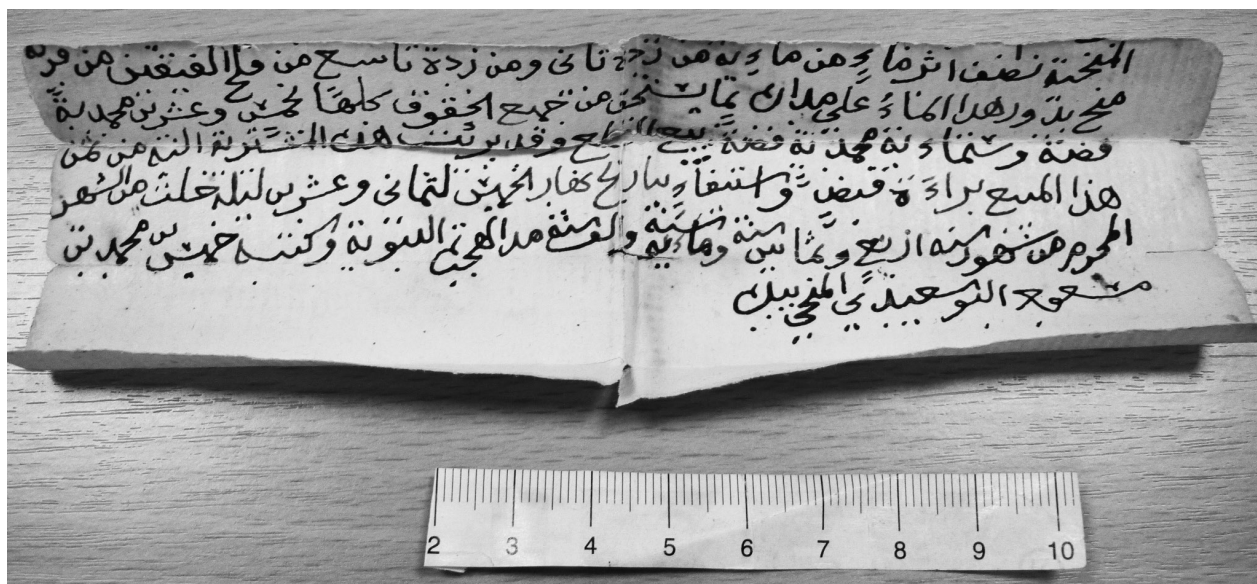 المنحية نصف اثر ماءٍ من ماءٍ من ردة ثاني ومن ردة تاسع من فلج الفيقين من قرية
منح يدور هذا الماء على مداره بما يستحق من جميع الحقوق كلها لخمس وعشرين محمدية
فضة وستماءية محمدية فضة بيع القطع وقد برئت هذه المشترية اليه من ثمن
هذا المبيع براءة قبض واستيفاء بتاريخ نهار الخميس لثماني وعشرين ليلة خلت من الشهر
المحرم من شهور سنة اربع وثمانين سنة وماءتي سنة والف سنة من الهجرة النبوية وكتبه خميس بن محمد بن
مسعود البوسعيدي المنحي بيده
2 3 4 5 6 7 8 9 10